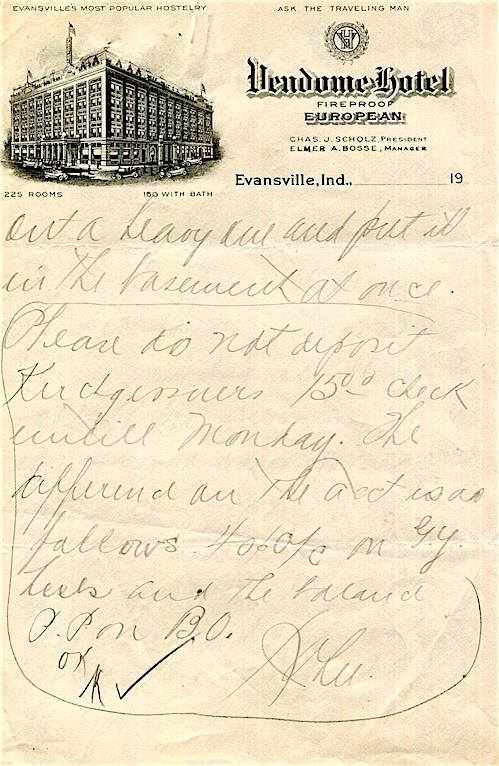 EVANSVILLE'S MOST POPULAR HOSTELRY
ASK THE TRAVELING MAN
Vendome Hotel
FIREPROOF
EUROPEAN
CHAS. J. SCHOLZ, PRESIDENT
ELMER A. BOSSE, MANAGER
225 ROOMS
150 WITH BATH
Evansville, Ind., 19
out a heavy one and put it
in the basement at once.
Please do not deposit
15.00 check
untill Monday. The
on the acct is as
follows. on G.Y.
and the
P.P. on B.O.
OK